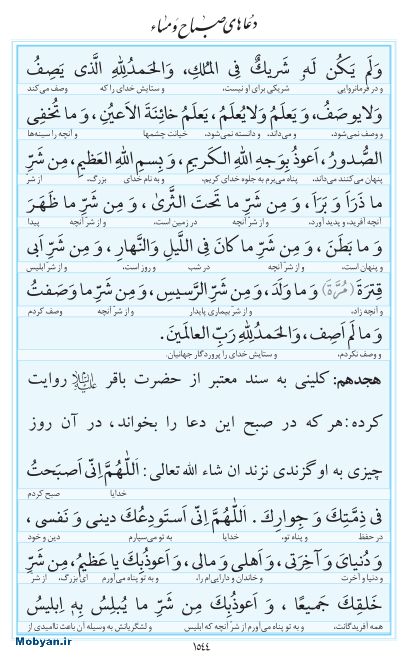 دعاهای صباح و مساء
وَلَم یَکُن لَهُ شَریکٌ فِی المُلکِ، وَالحَمدُلِلهِ الَّذی یَصِفُ
و در فرمانروایی شریکی برای او نیست، و ستایش خدای را که وصف می‌کند
وَلایوصَفُ، وَ یَعلَمُ وَلایُعلَمُ، یَعلَمُ خائِنَةَ الاَعیُنِ، وَ ما تُخفِی
و وصف نمی‌شود، و می‌داند، و دانسته نمی‌شود، خیانت چشمها و آنچه را سینه‌ها
الصُّدورُ، اَعوذُ بِوَجهِ اللهِ الکَریمِ، وَ بِسمِ اللهِ العَظیمِ، مِن شَرِّ
پنهان می‌کنند می‌داند، پناه می‌برم به جلوه خدای کریم، و به نام خدای بزرگ، از شر
ما ذَرَأَ وَ بَرَأَ، وَ مِن شَرِّ ما تَحتَ الثَّریٰ، وَ مِن شَرِّ ما ظَهَرَ
آنچه آفرید، و پدید آورد، و از شر آنچه در زمین است، و از شر آنچه پیدا
وَ ما بَطَنَ، وَ مِن شَرِّ ما کانَ فِی اللَّیلِ وَالنَّهارِ، وَ مِن شَرِّ اَبی
و پنهان است، و از شر آنچه در شب و روز است، و از شر ابلیس
قِترَةَ (مُرَّةَ) وَ ما وَلَدَ، وَ مِن شَرِّ الرَّسیسِ، وَ مِن شَرِّ ما وَصَفتُ
و آنچه زاد، و از شر بیماری پایدار و از شر آنچه وصف کردم
وَ ما لَم اَصِف، وَالحَمدُلِلهِ رَبِّ العالَمینَ.
و وصف نکردم، و ستایش خدای را پروردگار جهانیان.
هجدهم: کلینی به سند معتبر از حضرت باقر علیه‌السلام روایت
کرده: هر که در صبح این دعا را بخواند، در آن روز
چیزی به او گزندی نزند ان شاء الله تعالی: اَللّٰهُمَّ اِنّی اَصبَحتُ
خدایا صبح کردم
فی ذِمَّتِکَ وَ جِوارِکَ. اَللّٰهُمَّ اِنّی اَستَودِعُکَ دینی وَ نَفسی،
در حفظ و پناه تو، خدایا به تو می‌سپارم دین و خود
وَ دُنیایَ وَ آخِرَتی، وَ اَهلی وَ مالی، وَ اَعوذُبِکَ یا عَظیمُ، مِن شَرِّ
دنیا و آخرت و خاندان و دارایی‌ام را، و به تو پناه می‌آورم ای بزرگ، از شر
خَلقِکَ جَمیعًا، وَ اَعوذُبِکَ مِن شَرِّ ما یُبلِسُ بِهِ اِبلیسُ
همه آفریدگانت، و به تو پناه می‌آورم از شر آنچه که ابلیس و لشگریانش به وسیله آن باعث ناامیدی از
۱۵٤٤
Mobyan.ir